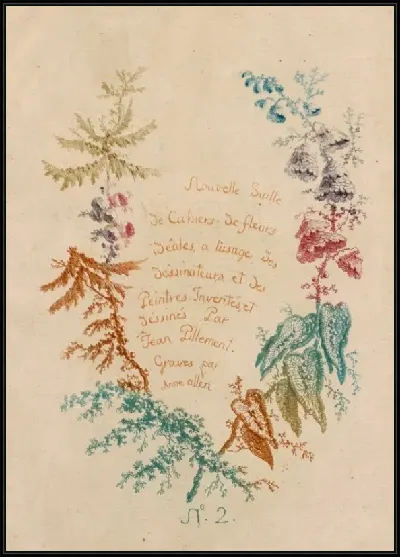 Nouvelle Suitte
De Cahiers de fleurs
Idéales, a l'usage des
Dessinateurs et des
Peintres Inventés, et
déssinés Par
Jean Pillement.
Gravés par
Anne allen
N.º 2.